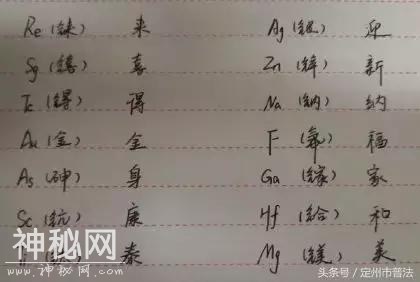 Re (铼) 来 Ag (银) 迎
Sg (𬭳) 喜 Zn (锌) 新
Tc (锝) 得 Na (钠) 纳
Au (金) 金 F (氟) 福
As (砷) 身 Ga (镓) 家
Sc (钪) 康 Hf (铪) 和
泰 Mg (镁) 美
神秘网
WWW.神秘网.COM
头条号 / 定州市普法